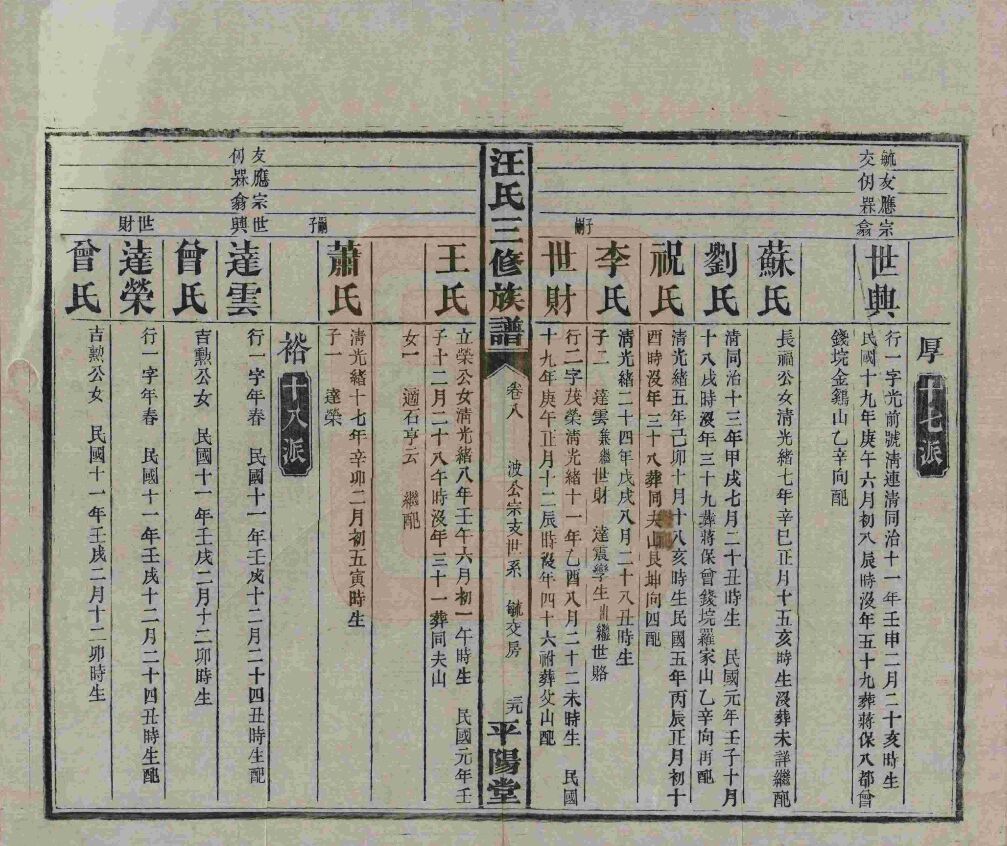 毓友應宗
交仞槑翕
厚
十七派
世興
行一字光前號清連清同治十一年壬申二月二十亥時生
民國十九年庚午六月初八辰時沒年五十九葬蔣保八都曾
錢垸金鷄山乙辛向配
蘇氏
長福公女清光緒七年辛巳正月十五亥時生沒葬未詳繼配
劉氏
清同治十三年甲戌七月二十丑時生 民國元年壬子十月
十八戌時沒年三十九葬蔣保曾錢垸羅家山乙辛向再配
祝氏
清光緒五年己卯十月十八亥時生民國五年丙辰正月初十
酉時沒年三十八葬同夫山艮坤向四配
李氏
清光緒二十四年戊戌八月二十八丑時生
子二 達雲兼繼世財 達震學生出繼世賂
嗣子
世財
行二字茂榮清光緒十一年乙酉八月二十二未時生 民國
十九年庚午正月十二辰時沒年四十六祔葬父山配
汪氏三修族譜
卷八 波公宗支世系 毓交房 三元
平陽堂
王氏
立榮公女清光緒八年壬午六月初一午時生 民國元年壬
子十二月二十八午時沒年三十一葬同夫山
女一 適石亨云 繼配
蕭氏
清光緒十七年辛卯二月初五寅時生
子一 達榮
嗣子
裕
十八派
友應宗世
仞槑翕興
達雲
行一字年春 民國十一年壬戌十二月二十四丑時生配
曾氏
吉勲公女 民國十一年壬戌二月十二卯時生
世財
達榮
行一字年春 民國十一年壬戌十二月二十四丑時生配
曾氏
吉勲公女 民國十一年壬戌二月十二卯時生